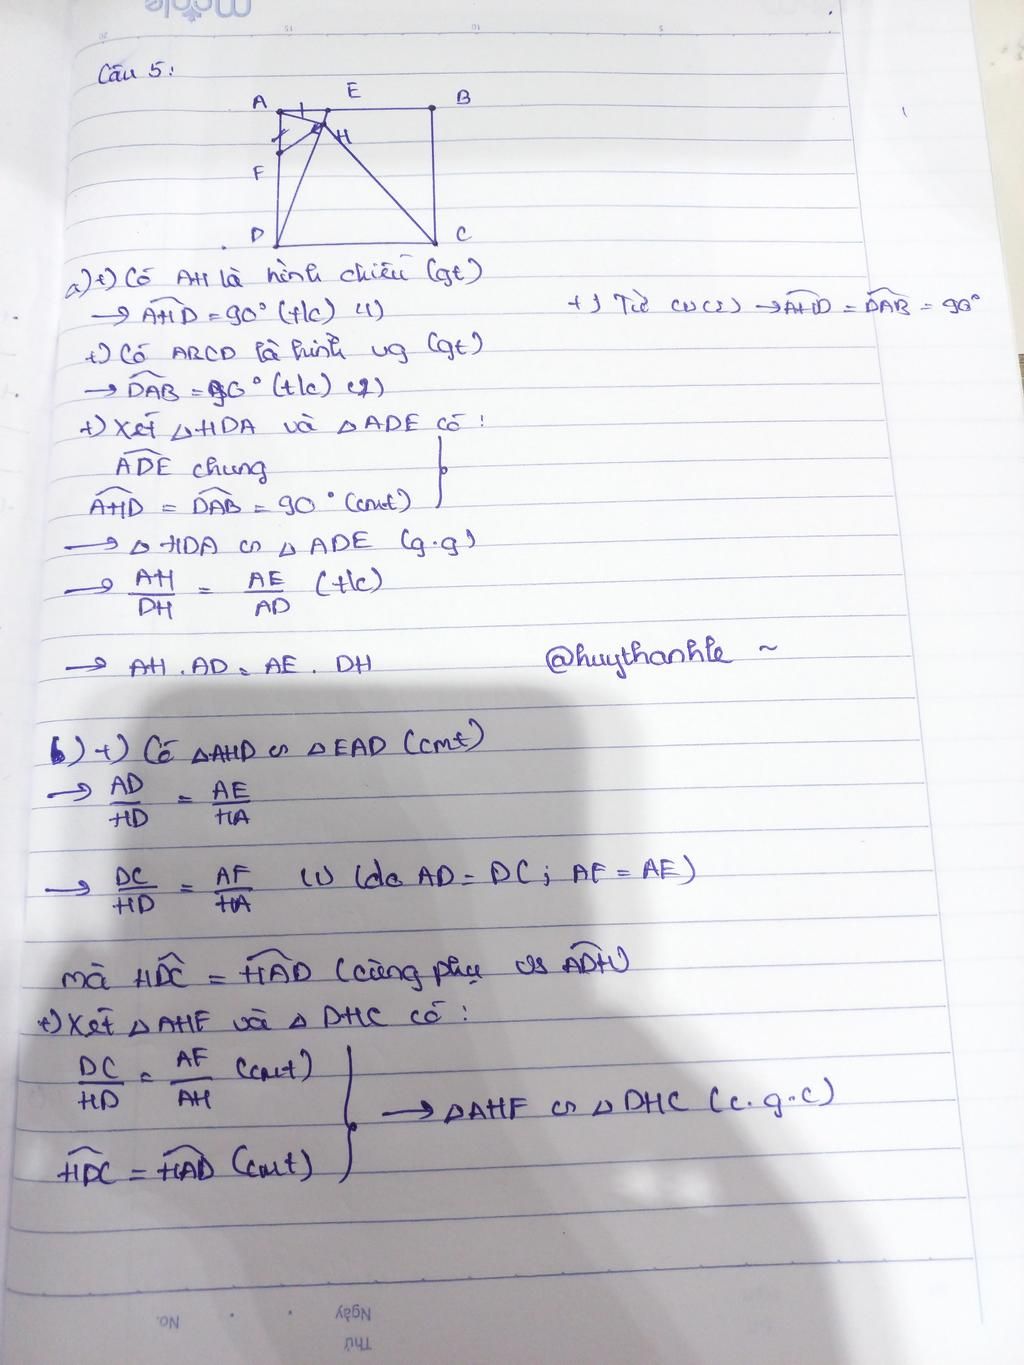 Câu 5:
A E B
H
F
D C
a) +) Có AH là hình chiếu (gt)
→ AHD = 90° (t/c) (1)
+) Từ (1)(2) → AHD = DAB = 90°
+) Có ABCD là hình vg (gt)
→ DAB = 90° (t/c) (2)
+) Xét △HDA và △ADE có:
ADE chung
AHD = DAB = 90° (cmt)
→ △HDA ∽ △ADE (g.g)
→ AH/DH = AE/AD (t/c)
→ AH . AD = AE . DH
@huythanhle ~
b) +) Có △AHD ∽ △EAD (cmt)
→ AD/HD = AE/HA
→ DC/HD = AF/HA (1) (do AD = DC; AF = AE)
mà HDC = HAD (cùng phụ vs ADH)
+) Xét △AHF và △DHC có:
DC/HD = AF/AH (cmt)
→ △AHF ∽ △DHC (c.g.c)
HDC = HAD (cmt)
Ngày
No.
Thứ